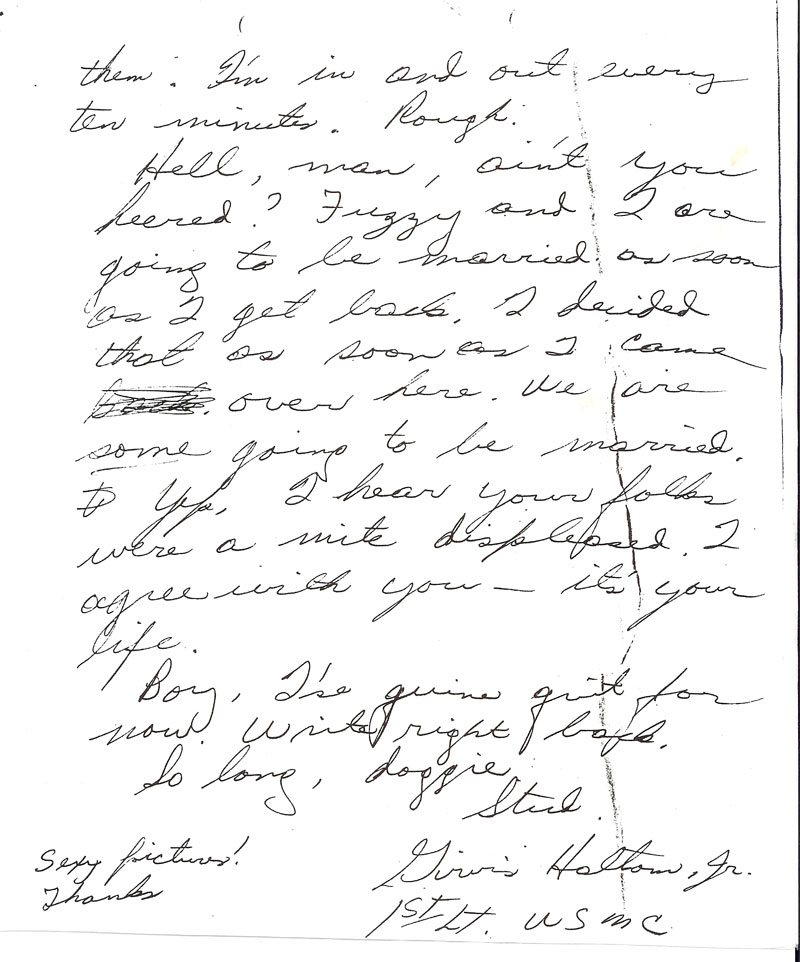 them. I'm in and out every
ten minutes. Rough.
Hell, man, ain't you
heered? Fuzzy and I are
going to be married as soon
as I get back. I decided
that as soon as I came
over here. We are
some going to be married.
Yep, I hear your folks
were a mite displeased. I
agree with you — it's your
life.
Boy, I'se guine quit for
now. Write right back.
So long, doggie.
Stud.
Sexy pictures!
Thanks
Holtom, Jr.
1st Lt. USMC